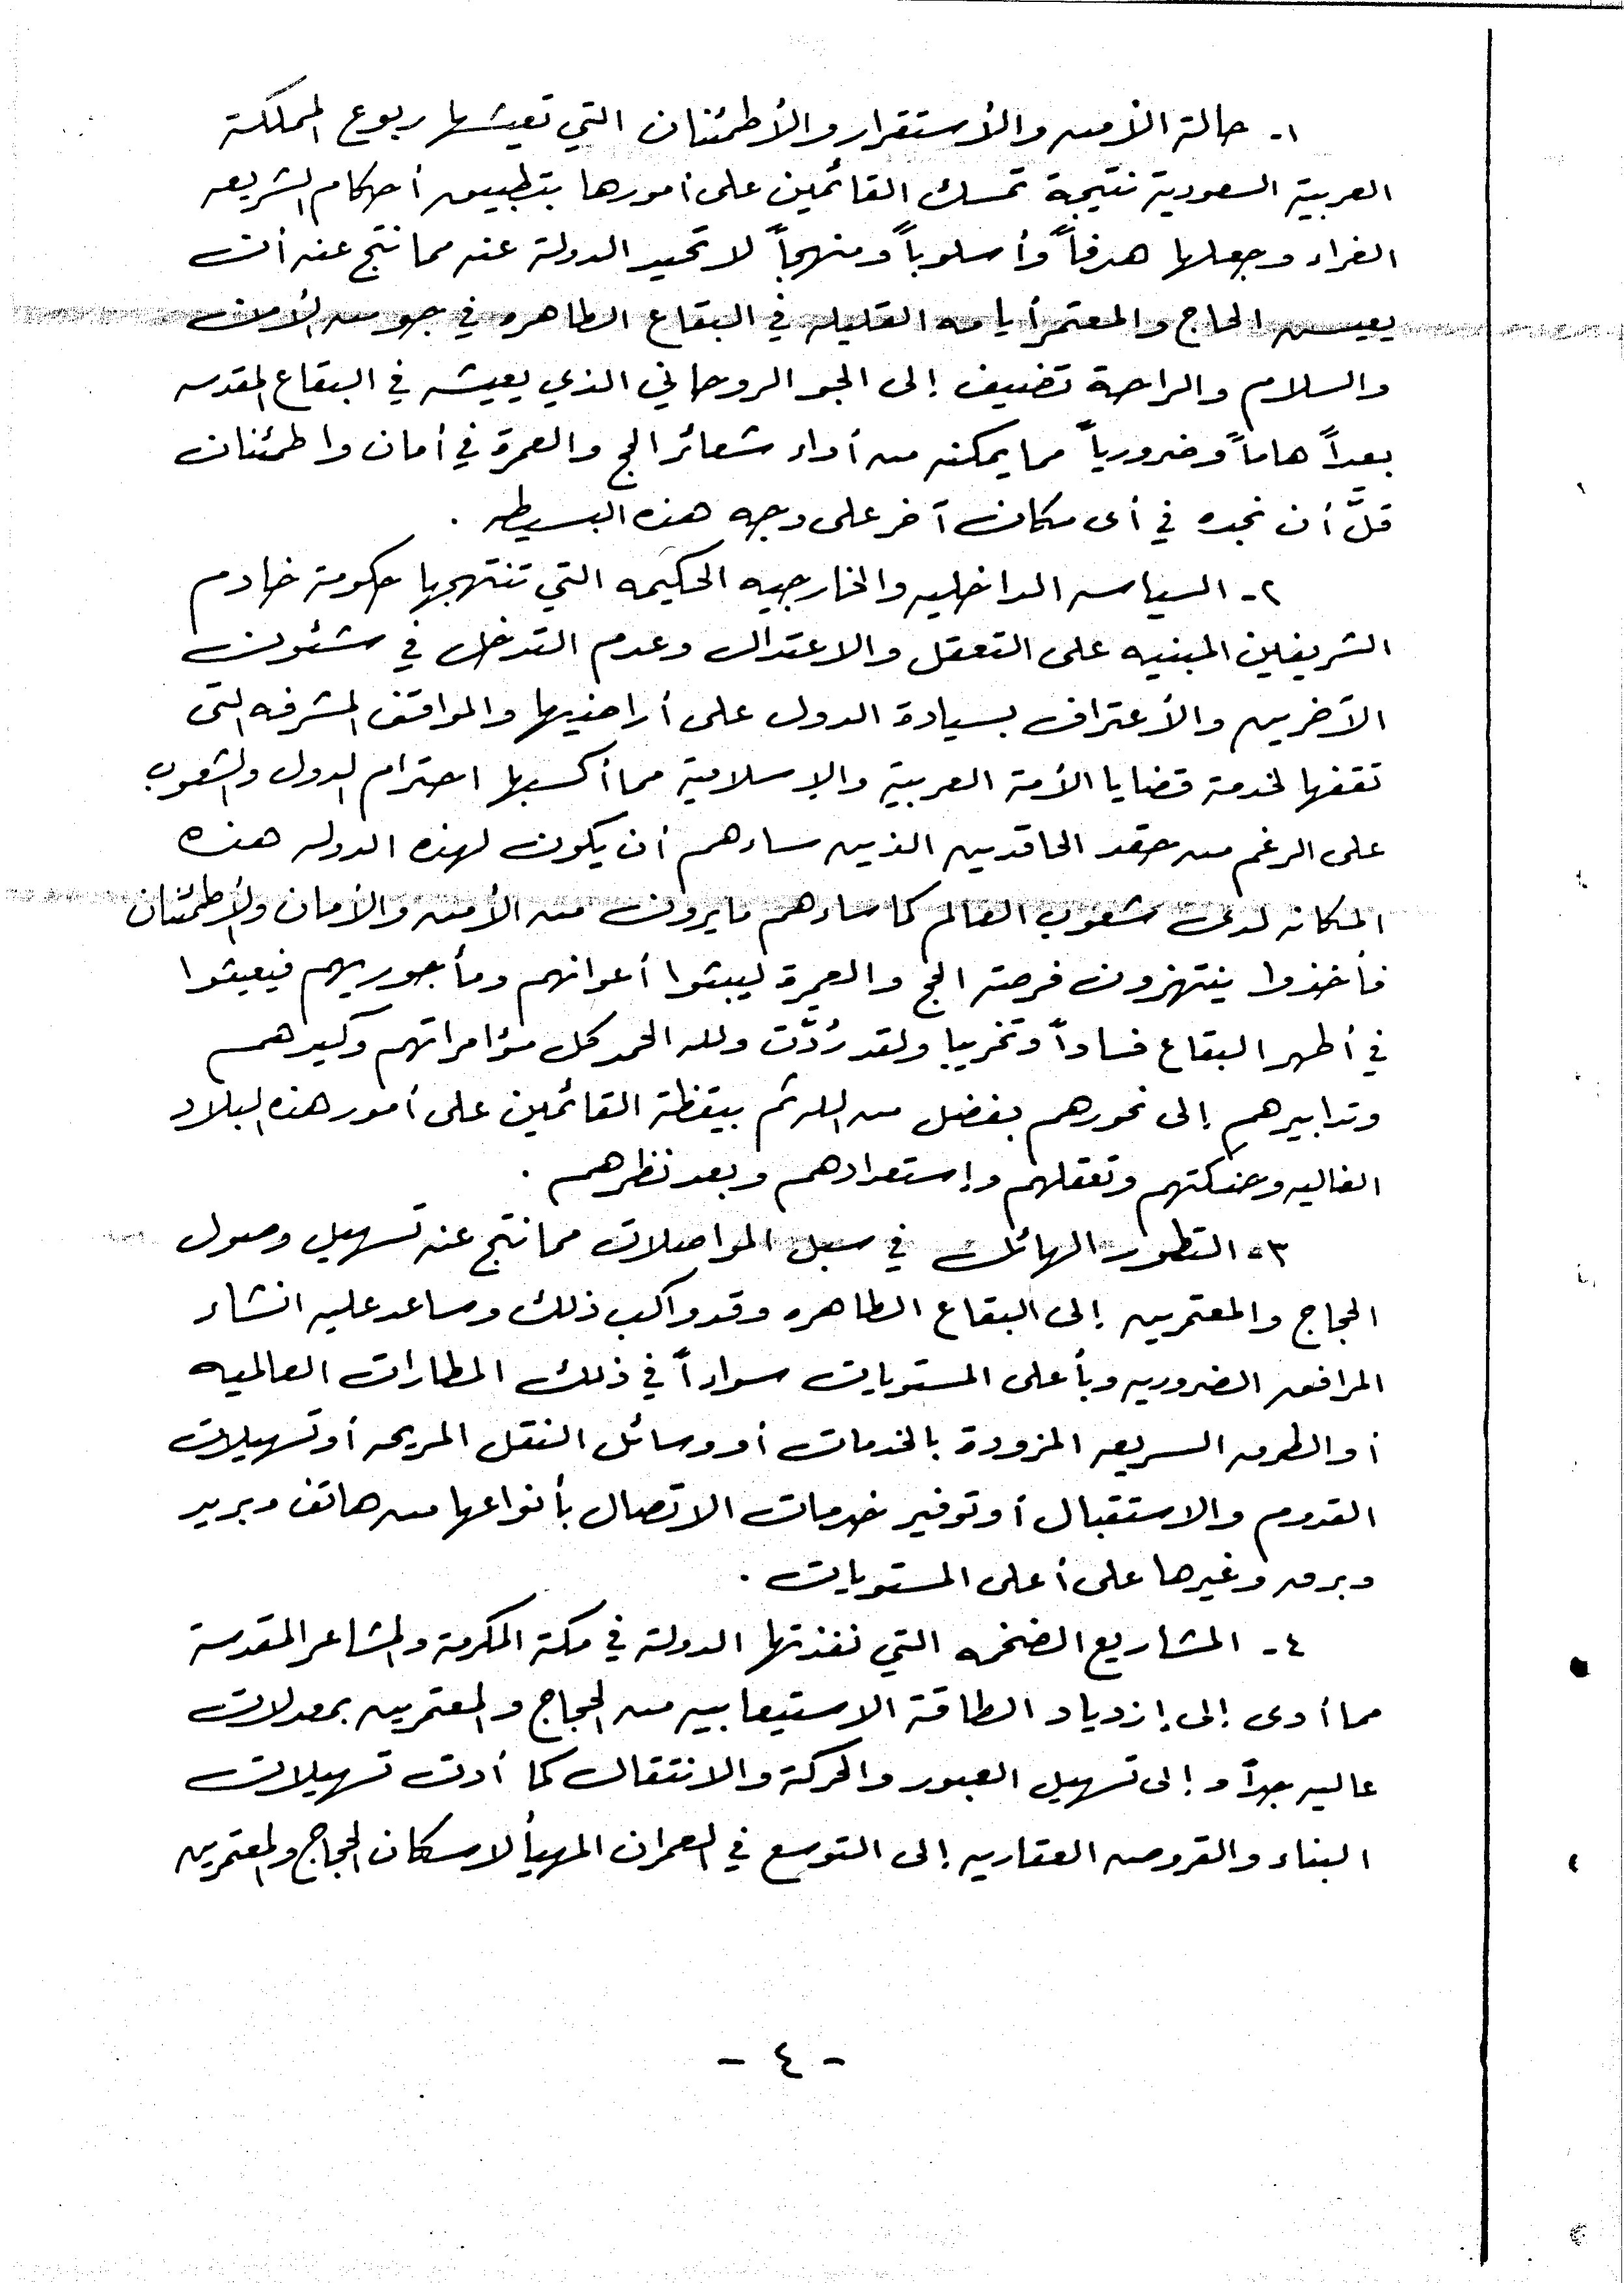 ١- حالة الأمن والأستقرار والأطمئنان التي تعيشها ربوع المملكة
العربية السعودية نتيجة تمسك القائمين على أمورها بتطبيق أحكام الشريعه
الغراء وجعلها هدفاً وأسلوباً ومنهجاً لا تحيد الدولة عنه مما نتج عنه أن
يعيش الحاج والمعتمر أيامه القليله في البقاع الطاهره في جو من الأمن
والسلام والراحة تضيف إلى الجو الروحاني الذي يعيشه في البقاع المقدسه
بعداً هاماً وضرورياً مما يمكنه من أداء شعائر الحج والعمرة في أمان واطمئنان
قلَّ أن نجده في أى مكان آخر على وجه هذه البسيطه .
٢- السياسه الداخليه والخارجيه الحكيمه التي تنتهجها حكومة خادم
الشريفين المبنيه على التعقل والاعتدال وعدم التدخل في شئون
الآخرين والأعتراف بسيادة الدول على أراضيها والمواقف المشرفه التى
تقفها لخدمة قضايا الأمة العربية والإسلامية مما أكسبها احترام الدول والشعوب
على الرغم من حقد الحاقدين الذين ساءهم أن يكون لهذه الدوله هذه
المكانه لدى شعوب العالم كما ساءهم ما يرون من الأمن والأمان والأطمئنان
فأخذوا ينتهزون فرصة الحج والعمرة ليبثوا أعوانهم ومأجوريهم فيعيثوا
في أطهر البقاع فساداً وتخريبا ولقد رُدَّت ولله الحمد كل مؤامراتهم وكيدهم
وتدابيرهم إلى نحورهم بفضل من الله ثم بيقظة القائمين على أمور هذه البلاد
الغاليه وحنكتهم وتعقلهم وإستعدادهم وبعد نظرهم .
٣- التطور الهائل في سبل المواصلات مما نتج عنه تسهيل وصول
الحجاج والمعتمرين إلى البقاع الطاهره وقد واكب ذلك وساعد عليه انشاء
المرافق الضروريه وبأعلى المستويات سواءاً في ذلك المطارات العالميه
أو الطرق السريعه المزودة بالخدمات أو وسائل النقل المريحه أو تسهيلات
القدوم والاستقبال أو توفير خدمات الاتصال بأنواعها من هاتف وبريد
وبرق وغيرها على أعلى المستويات .
٤- المشاريع الضخمه التي نفذتها الدولة في مكة المكرمة والمشاعر المقدسة
مما أدى إلى إزدياد الطاقة الاستيعابيه من الحجاج والمعتمرين بمعدلات
عاليه جداً وإلى تسهيل العبور والحركة والانتقال كما أدت تسهيلات
البناء والقروض العقاريه إلى التوسع في العمران المهيأ لاسكان الحجاج والمعتمرين
- ٤ -